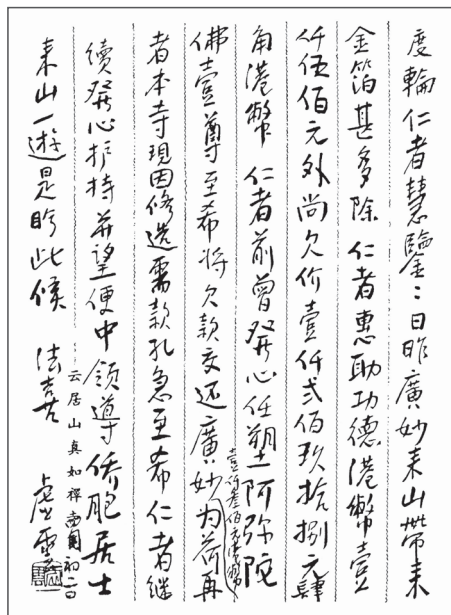 度輪仁者慧鑒:日昨廣妙来山帶来
金箔甚多除 仁者惠助功德港幣壹
仟伍佰元外尚欠价壹仟弍佰玖拾捌元肆
角港幣 仁者前曾發心任塑一阿弥陀
佛壹尊至希將欠款交还廣妙为荷再
壹仟叁佰元港幣
者本寺現因修造需款孔急至希仁者継
續發心护持并望便中領導侨胞居士
来山一遊是盼此候 法喜
云居山真如禅 初二日
虚雲